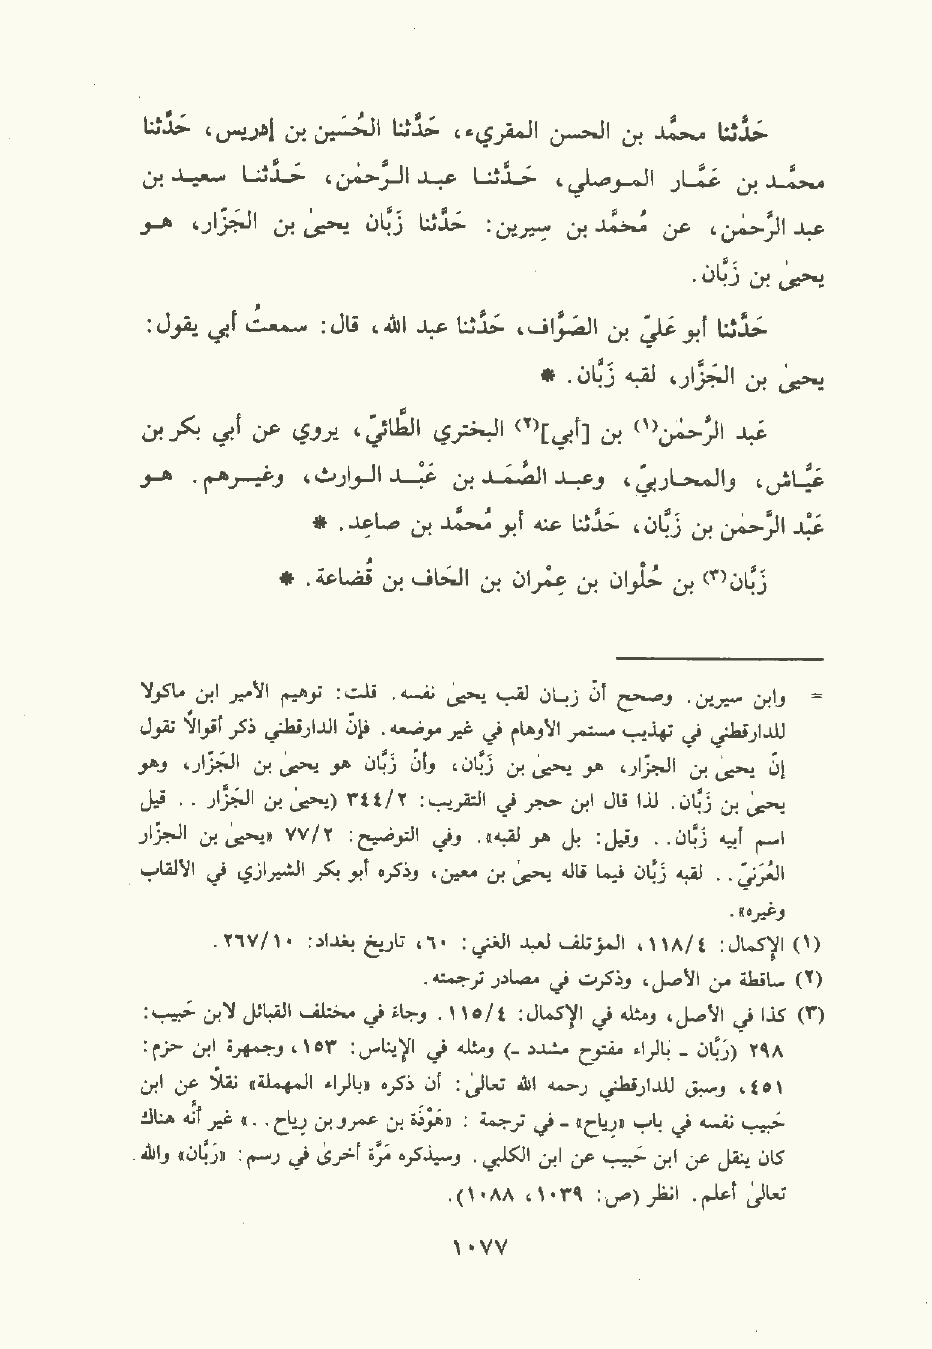 حَدَّثنا محمَّد بن الحسن المقريء، حَدَّثنا الحُسَين بن إدريس، حَدَّثنا
محمَّد بن عَمَّار الموصلي، حَدَّثنا عبد الرَّحمٰن، حَدَّثنا سعيد بن
عبد الرَّحمٰن، عن مُحمَّد بن سِيرين: حَدَّثنا زَبَّان يحيىٰ بن الجَزَّار، هو
يحيىٰ بن زَبَّان.
حَدَّثنا أبو عَليّ بن الصَوَّاف، حَدَّثنا عبد الله، قال: سمعتُ أبي يقول:
يحيىٰ بن الجَزَّار، لقبه زَبَّان. *
عَبد الرَّحمٰن(١) بن [أبي](٢) البختري الطَّائيّ، يروي عن أبي بكر بن
عَيَّاش، والمحاربيّ، وعبد الصَّمَد بن عَبْد الوارث، وغيرهم. هو
عَبْد الرَّحمٰن بن زَبَّان، حَدَّثنا عنه أبو مُحمَّد بن صاعد. *
زَبَّان(٣) بن حُلْوان بن عِمْران بن الحَاف بن قُضاعة. *
= وابن سيرين. وصحح أنّ زبان لقب يحيىٰ نفسه. قلت: توهيم الأمير ابن ماكولا
للدارقطني في تهذيب مستمر الأوهام في غير موضعه. فإنّ الدارقطني ذكر أقوالاً تقول
إنّ يحيىٰ بن الجزّار، هو يحيىٰ بن زَبَّان، وأنّ زَبَّان هو يحيىٰ بن الجَزَّار، وهو
يحيىٰ بن زَبَّان. لذا قال ابن حجر في التقريب: ٣٤٤/٢ (يحيىٰ بن الجَزَّار .. قيل
اسم أبيه زَبَّان.. وقيل: بل هو لقبه». وفي التوضيح: ٧٧/٢ «يحيىٰ بن الجزار
العُرَنيّ.. لقبه زَبَّان فيما قاله يحيىٰ بن معين، وذكره أبو بكر الشيرازي في الألقاب
وغيره».
(١) الإكمال: ١١٨/٤، المؤتلف لعبد الغني: ٦٠، تاريخ بغداد: ٢٦٧/١٠.
(٢) ساقطة من الأصل، وذكرت في مصادر ترجمته.
(٣) كذا في الأصل، ومثله في الإكمال: ١١٥/٤. وجاء في مختلف القبائل لابن حَبيب:
٢٩٨ (زَبَّان - بالراء مفتوح مشدد -) ومثله في الإيناس: ١٥٣، وجمهرة ابن حزم:
٤٥١، وسبق للدارقطني رحمه الله تعالىٰ: أن ذكره «بالراء المهملة» نقلاً عن ابن
حَبيب نفسه في باب «رياح» - في ترجمة: «هَوْذَة بن عمرو بن رياح..» غير أنّه هناك
كان ينقل عن ابن حَبيب عن ابن الكلبي. وسيذكره مَرّة أخرىٰ في رسم: «زَبَّان» والله
تعالىٰ أعلم. انظر (ص: ١٠٣٩، ١٠٨٨).
١٠٧٧